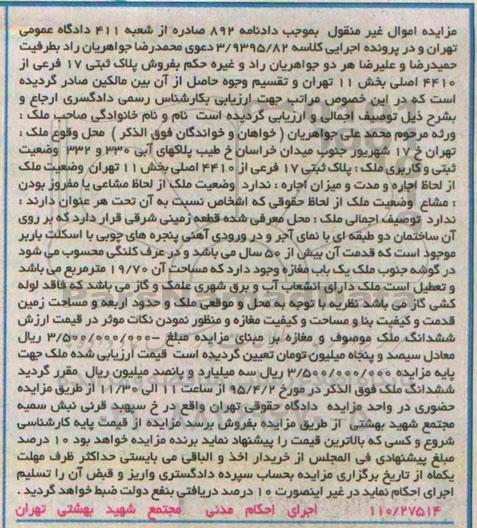 مزایده اموال غیر منقول  بموجب دادنامه ۸۹۲ صادره از شعبه ۴۱۱ دادگاه عمومی
تهران و در پرونده اجرایی کلاسه ۳/۹۳۹۵/۸۲ دعوی محمدرضا جواهریان راد بطرفیت
حمیدرضا و علیرضا هر دو جواهریان راد و غیره حکم بفروش پلاک ثبتی ۱۷ فرعی از
۴۴۱۰ اصلی بخش ۱۱ تهران و تقسیم وجوه حاصل از آن بین مالکین صادر گردیده
است که در این خصوص مراتب جهت ارزیابی بکارشناس رسمی دادگستری ارجاع و
بشرح ذیل توصیف اجمالی و ارزیابی گردیده است  نام و نام خانوادگی صاحب ملک :
ورثه مرحوم محمد علی جواهریان ( خواهان و خواندگان فوق الذکر )  محل وقوع ملک :
تهران خ ۱۷ شهریور جنوب میدان خراسان خ طیب پلاکهای آبی ۳۳۰ و ۳۳۲  وضعیت
ثبتی و کاربری ملک : پلاک ثبتی ۱۷ فرعی از ۴۴۱۰ اصلی بخش ۱۱ تهران  وضعیت ملک
از لحاظ اجاره و مدت و میزان اجاره : ندارد  وضعیت ملک از لحاظ مشاعی یا مفروز بودن
: مشاع  وضعیت ملک از لحاظ حقوقی که اشخاص نسبت به آن تحت هر عنوان دارند :
ندارد  توصیف اجمالی ملک : محل معرفی شده قطعه زمینی شرقی قرار دارد که بر روی
آن ساختمان دو طبقه ای با نمای آجر و در ورودی آهنی پنجره های چوبی با اسکلت باربر
موجود است که قدمت آن بیش از ۵۰ سال می باشد و در عرف کلنگی محسوب می شود
در گوشه جنوب ملک یک باب مغازه وجود دارد که مساحت آن ۱۹/۷۰ مترمربع می باشد
و تعطیل است ملک دارای انشعاب آب و برق شهری علمک و گاز می باشد که فاقد لوله
کشی گاز می باشد نظریه با توجه به محل و موقعی ملک و حدود اربعه و مساحت زمین
قدمت و کیفیت بنا و مساحت و کیفیت مغازه و منظور نمودن نکات موثر در قیمت ارزش
ششدانگ ملک موصوف و مغازه بر مبنای مزایده مبلغ ۳/۵۰۰/۰۰۰/۰۰۰ ریال
معادل سیصد و پنجاه میلیون تومان تعیین گردیده است  قیمت ارزیابی شده ملک جهت
پایه مزایده ۳/۵۰۰/۰۰۰/۰۰۰ ریال سه میلیارد و پانصد میلیون ریال  مقرر گردید
ششدانگ ملک فوق الذکر در مورخ ۹۵/۴/۲ از ساعت ۱۱ الی ۱۱/۳۰ از طریق مزایده
حضوری در واحد مزایده  دادگاه حقوقی تهران واقع در خ سپهبد قرنی نبش سمیه
مجتمع شهید بهشتی  از طریق مزایده بفروش برسد مزایده از قیمت پایه کارشناسی
شروع و کسی که بالاترین قیمت را پیشنهاد نماید برنده مزایده خواهد بود ۱۰ درصد
مبلغ پیشنهادی فی المجلس از خریدار اخذ و الباقی می بایستی حداکثر ظرف مهلت
یکماه از تاریخ برگزاری مزایده بحساب سپرده دادگستری واریز و قبض آن را تسلیم
اجرای احکام نماید در غیر اینصورت ۱۰ درصد دریافتی بنفع دولت ضبط خواهد گردید .
۱۱۰/۲۷۵۱۴  اجرای احکام مدنی  مجتمع شهید بهشتی تهران